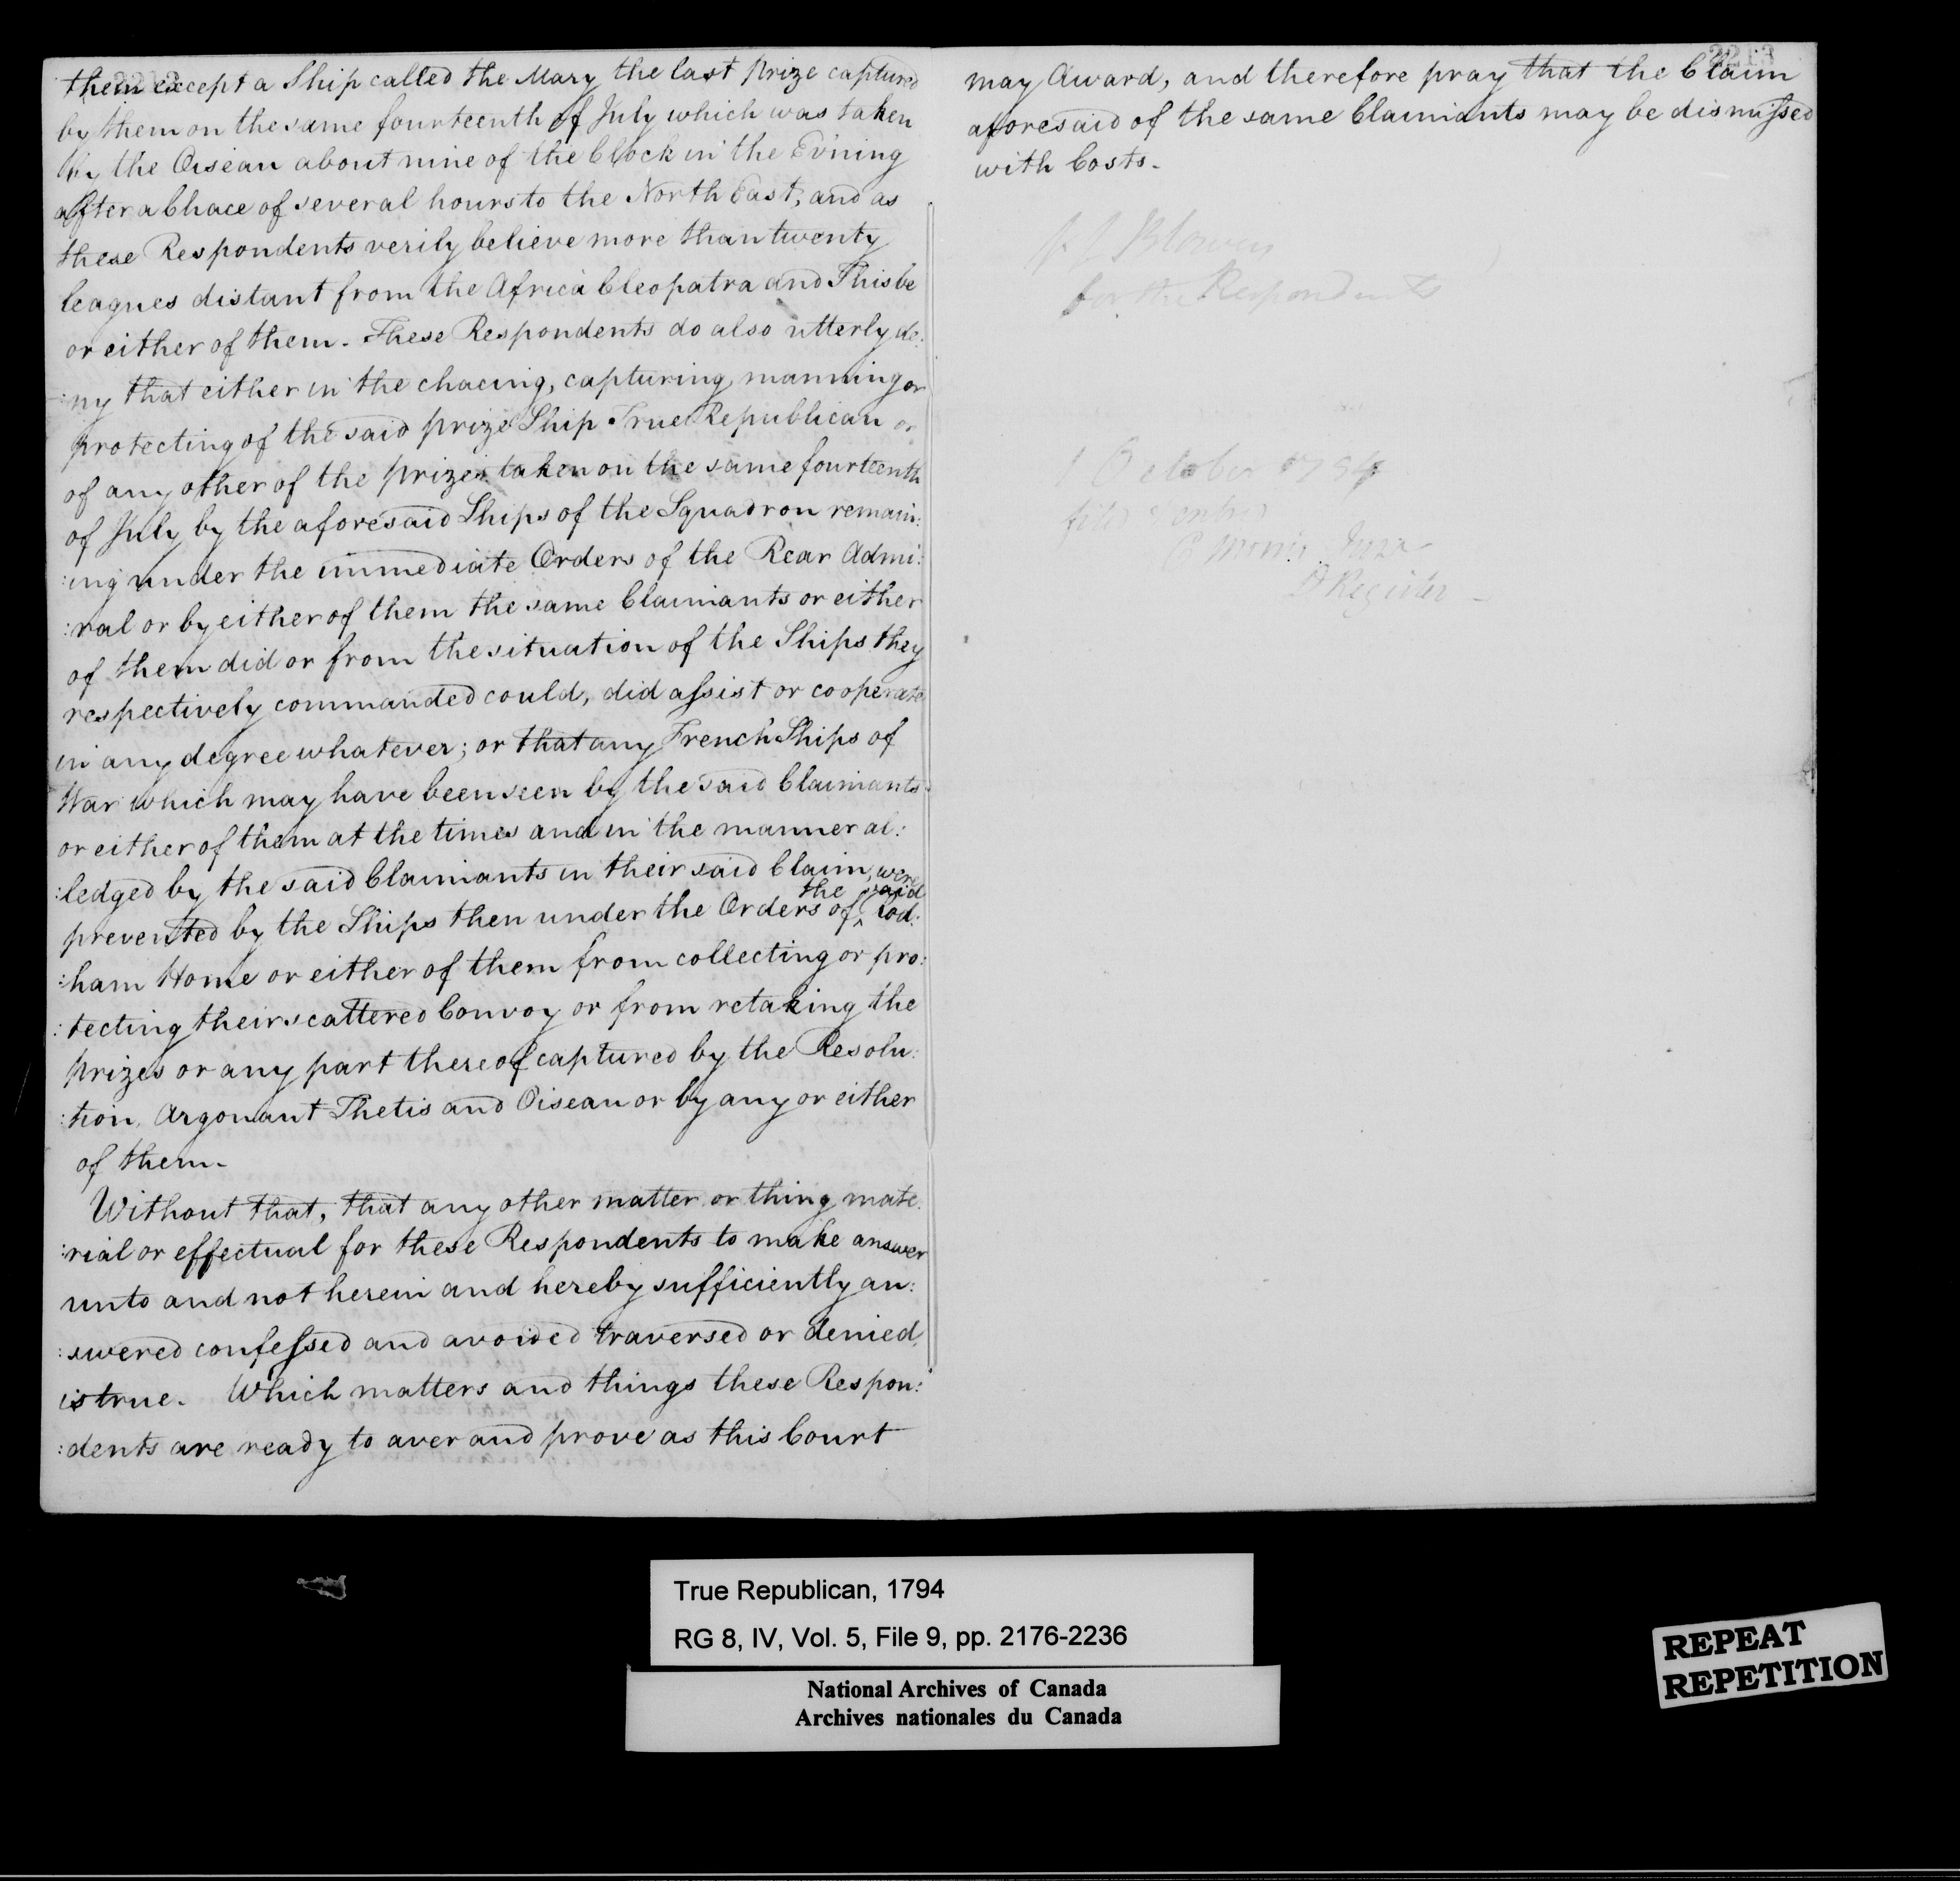 2212
them except a Ship called the Mary the last prize captured
by them on the same fourteenth of July which was taken
by the Oiseau about nine of the Clock in the Ev'ning
after a Chace of several hours to the North East, and as
these Respondents verily believe more than twenty
leagues distant from the Africa Cleopatra and Thisbe
or either of them. These Respondents do also utterly de:
:ny that either in the chacing, capturing, manning or
protecting of the said prize Ship True Republican or
of any other of the prizes taken on the same fourteenth
of July by the aforesaid Ships of the Squadron remain:
:ing under the immediate Orders of the Rear Admi:
:ral or by either of them the same Claimants or either
of them did or from the situation of the Ships they
respectively commanded could, did assist or cooperate
in any degree whatever; or that any French Ships of
War which may have been seen by the said Claimants
or either of them at the times and in the manner al:
:ledged by the said Claimants in their said Claim, were
prevented by the Ships then under the Orders of the said Rod:
:ham Home or either of them from collecting or pro:
:tecting their scattered Convoy or from retaking the
prizes or any part thereof captured by the Resolu:
:tion, Argonaut Thetis and Oiseau or by any or either
of them.
Without that, that any other matter or thing mate:
:rial or effectual for these Respondents to make answer
unto and not herein and hereby sufficiently an:
:swered confessed and avoided traversed or denied,
is true. Which matters and things these Respon:
:dents are ready to aver and prove as this Court
2213
may Award, and therefore pray that the Claim
aforesaid of the same Claimants may be dismissed
with Costs.
Blowers
for the Respondents
1 October 1794
filed
C Morris Junr
D Register
True Republican, 1794
RG 8, IV, Vol. 5, File 9, pp. 2176-2236
National Archives of Canada
Archives nationales du Canada
REPEAT
REPETITION